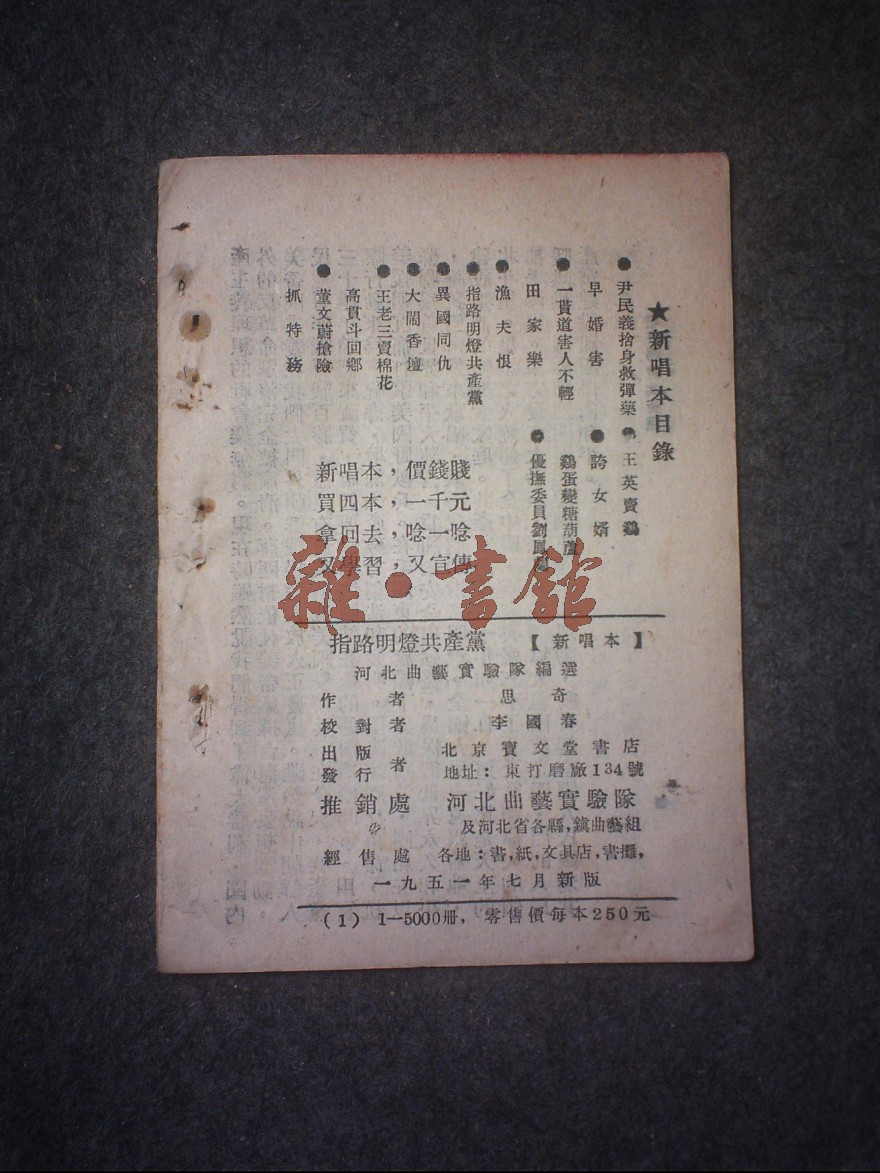 ★新唱本目錄
●尹民義捨身救彈藥
●王英賣鷄
早婚害
●誇女婿
●一貫道害人不輕
鷄蛋變糖葫蘆
田家樂
●優撫委員劉鳳
●漁夫恨
●指路明燈共產黨
●異國同仇
●大鬧香壇
●王老三賣棉花
高貫斗回鄉
●董文蔚搶險
抓特務
新唱本，價錢賤
買四本，一千元
拿回去，唸一唸
又學習，又宣傳
雜·書館
指路明燈共產黨 【新唱本】
河北曲藝實驗隊編選
作者 思奇
校對者 李國春
出版發行者 北京寶文堂書店
地址：東打磨廠134號
推銷處 河北曲藝實驗隊
及河北省各縣，鎮曲藝組
經售處 各地：書，紙，文具店，書攤，
一九五一年七月新版
(1) 1—5000册，零售價每本250元